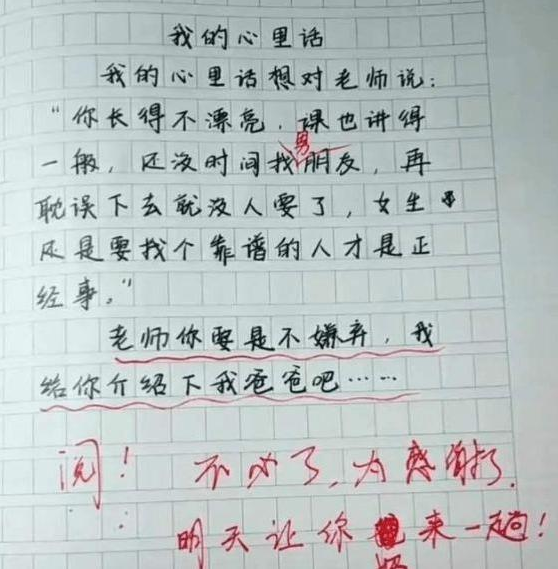 我的心里话
我的心里话想对老师说：
“你长得不漂亮，课也讲得
男
一般，还没时间找朋友，再
耽误下去就没人要了，女生
还是要找个靠谱的人才是正
经事。”
老师你要是不嫌弃，我
给你介绍下我爸爸吧……
阅！不必了，太感谢了，
明天让你 来一趟！
妈